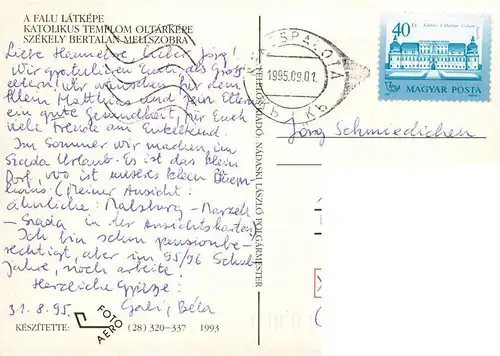 A FALU LÁTKÉPE
KATOLIKUS TEMPLOM OLTÁRKÉPE
SZÉKELY BERTALAN MELLSZOBRA
Liebe Hannelore lieber Jörg!
Wir gratulieren Euch, als Gross-
eltern! Wir wünschen für dem
klein Matthias und sein Eltern
ein gute Gesundheit, für Euch
viele Freude am Enkelkind.
Im Sommer wir machen im
Szada Urlaub. Es ist das klein
Dorf, wo ist unseres klein
(Meiner Ansicht:
ähnliche: Malsburg-Marzell
- Szada in der Ansichtskarten)
Ich bin schon pensionbe-
rechtigt, aber im 95/96 Schul-
Jahre, noch arbeite!
Herzliche Grüsse:
31.8.95. Gabi, Béla
KÉSZÍTETTE: FOTO AERO (28) 320-337 1993
FELELŐS KIADÓ NÁDASKI LÁSZLÓ POLGÁRMESTER
1995.09.01.
40 Ft
MAGYAR POSTA
Jörg Schmiedichen